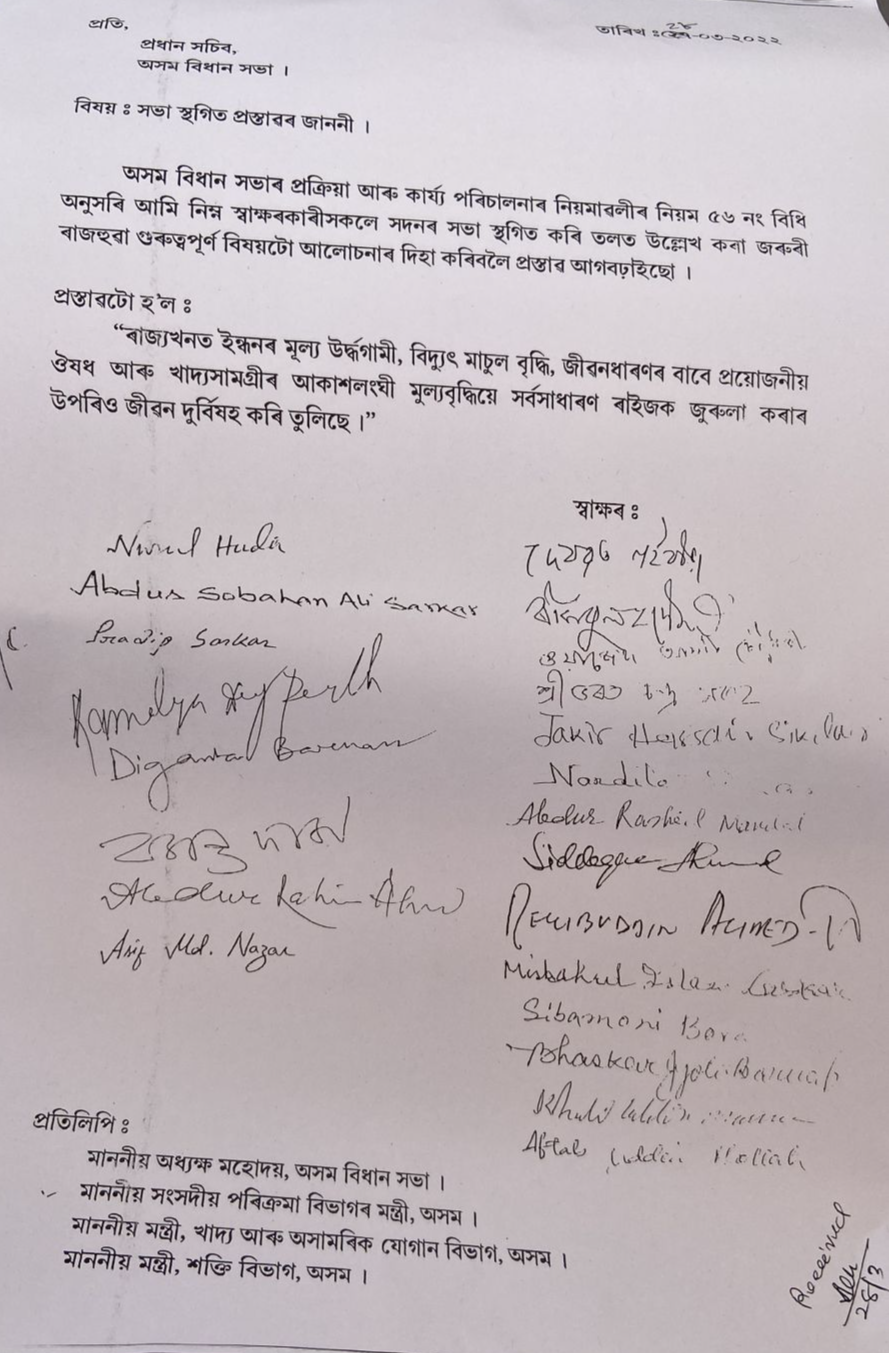 প্ৰতি,
তাৰিখ ঃ ২৮-০৩-২০২২
প্ৰধান সচিব,
অসম বিধান সভা ।
বিষয় ঃ সভা স্থগিত প্ৰস্তাৱৰ জাননী ।
অসম বিধান সভাৰ প্ৰক্ৰিয়া আৰু কাৰ্য্য পৰিচালনাৰ নিয়মাৱলীৰ নিয়ম ৫৬ নং বিধি
অনুসৰি আমি নিম্ন স্বাক্ষৰকাৰীসকলে সদনৰ সভা স্থগিত কৰি তলত উল্লেখ কৰা জৰুৰী
ৰাজহুৱা গুৰুত্বপূৰ্ণ বিষয়টো আলোচনাৰ দিহা কৰিবলৈ প্ৰস্তাৱ আগবঢ়াইছো ।
প্ৰস্তাৱটো হ'ল ঃ
“ৰাজ্যখনত ইন্ধনৰ মূল্য উৰ্দ্ধগামী, বিদ্যুৎ মাচুল বৃদ্ধি, জীৱনধাৰণৰ বাবে প্ৰয়োজনীয়
ঔষধ আৰু খাদ্যসামগ্ৰীৰ আকাশলংঘী মূল্যবৃদ্ধিয়ে সৰ্বসাধাৰণ ৰাইজক জুৰুলা কৰাৰ
উপৰিও জীৱন দুৰ্বিষহ কৰি তুলিছে ।”
স্বাক্ষৰ ঃ
Nurul Huda
Abdus Sobahan Ali Sarkar
Pradip Sarkar
Diganta Barman
Abdur Rahim Ahmed
Asif Md. Nazar
Nandita
Abdur Rashid Mandal
Siddeque Ahmed
REKIBUDDIN AHMED
Misbahul Islam Laskar
Sibamoni Bora
Bhaskar Jyoti Baruah
Aftab Uddin Mollah
প্ৰতিলিপি ঃ
মাননীয় অধ্যক্ষ মহোদয়, অসম বিধান সভা ।
মাননীয় সংসদীয় পৰিক্ৰমা বিভাগৰ মন্ত্ৰী, অসম ।
মাননীয় মন্ত্ৰী, খাদ্য আৰু অসামৰিক যোগান বিভাগ, অসম ।
মাননীয় মন্ত্ৰী, শক্তি বিভাগ, অসম ।
Received
28/3